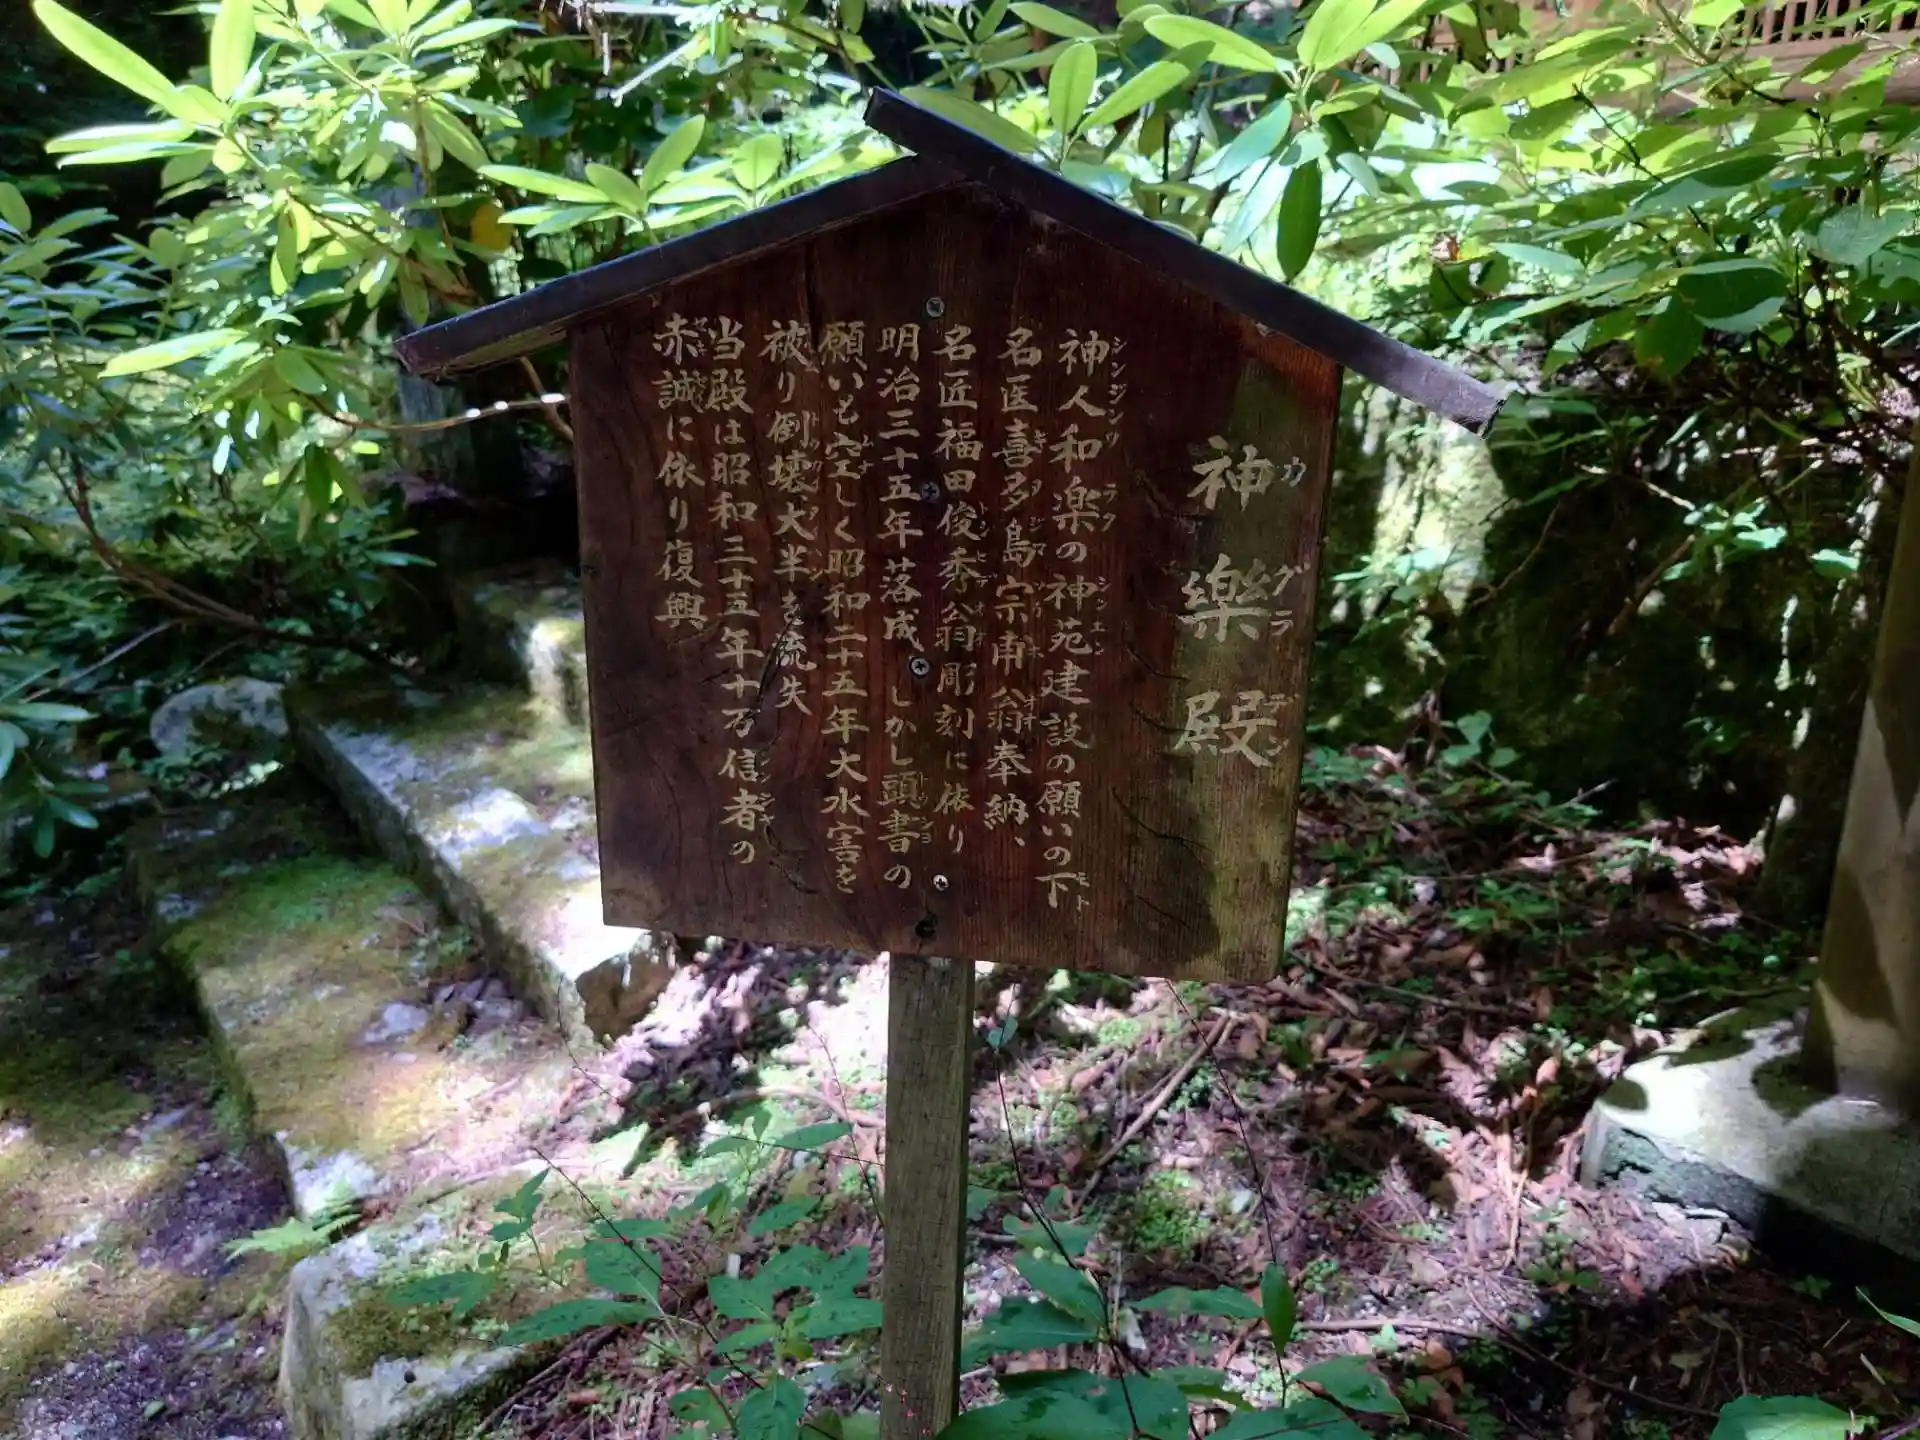 神樂殿
カグラデン
神人和楽の神苑建設の願いの下
シンジンワラク シンエン モト
名医喜多島宗甫翁奉納、
名匠福田俊秀翁彫刻に依り
明治三十五年落成 しかし頭書の
願いも空しく昭和二十五年大水害を
被り倒壊、大半を流失
当殿は昭和三十五年十万信者の
赤誠に依り復興